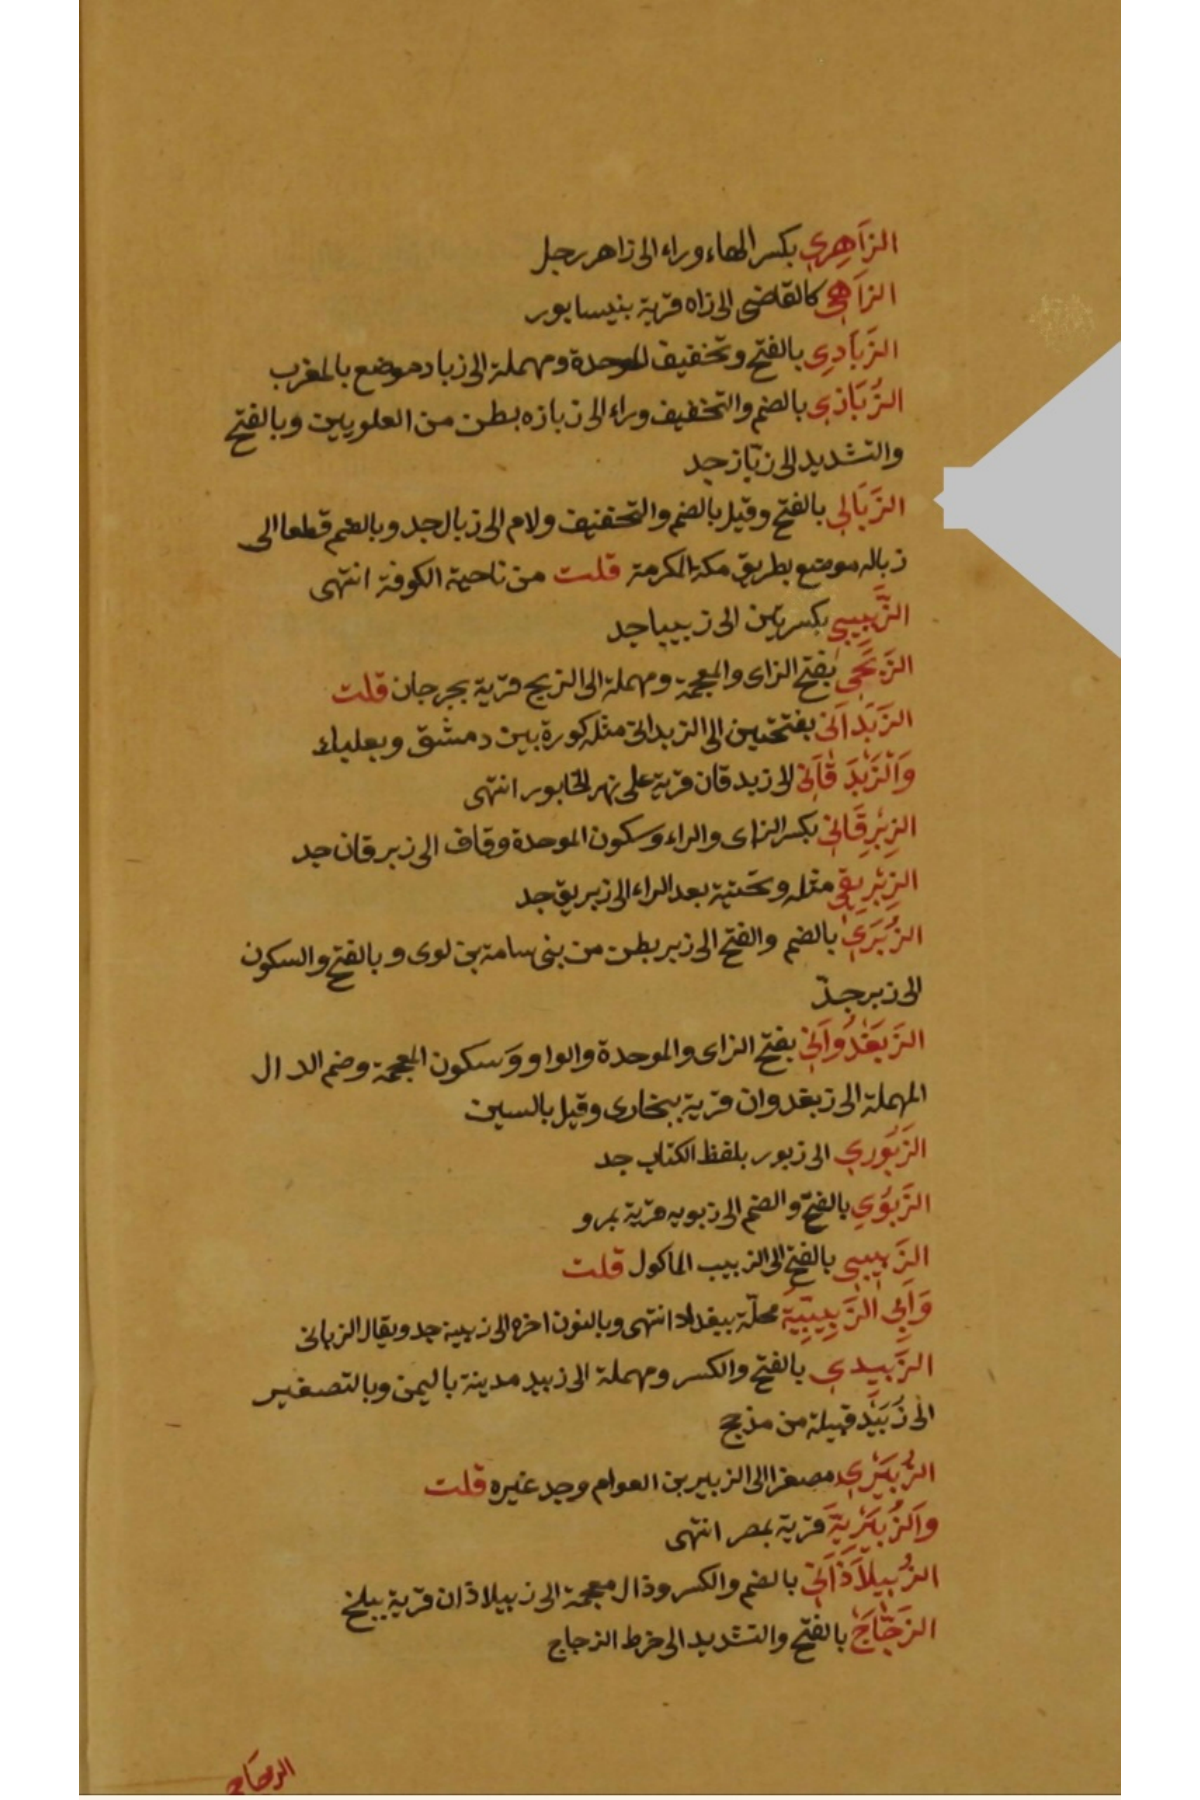 الزَاهِري بكسر الهاء وراء الى زاهر رجل
الزاَهي كالقاضي الى زاه قرية بنيسابور
الزَبَادِي بالفتح وتخفيف الموحدة ومهملة الى زباد موضع بالمغرب
الزُبَازي بالضم والتخفيف وراء الى زبازه بطن من العلويين وبالفتح
والتشديد الى زبّاز جد
الزَبَالي بالفتح وقيل بالضم والتخفيف ولام الى زبال جد وبالضم قطعا الى
زباله موضع بطريق مكة المكرمة قلت من ناحية الكوفة انتهى
الزِّبِيبي بكسرتين الى زبيبا جد
الزَبَحَي بفتح الزاى والمعجمة ومهملة الى الزبح قرية بجرجان قلت
الزَبَدَانَي بفتحتين الى الزبدانى مثله كورة بين دمشق وبعلبك
وَالْزَبْدَ قَانَي الى زبدقان قرية على نهر الخابور انتهى
الزِبْرِقَاني بكسر الزاى والراء وسكون الموحدة وقاف الى زبرقان جد
الزِبْرِيقي مثله وتحتية بعد الراء الى زبريق جد
الزُبَرَي بالضم والفتح الى زبر بطن من بنى سامة بن لوى وبالفتح والسكون
الى زبر جدّ
الزَبَغْدُوَانَي بفتح الزاى والموحدة والواو وَسكون المعجمة وضم الدال
المهملة الى زبغدوان قرية ببخارى وقيل بالسين
الزَبُوري الى زبور بلفظ الكتاب جد
الزَبَوُي بالفتح والضم الى زبويه قرية بمرو
الزَبيبي بالفتح الى الزبيب الماكول قلت
وَالِي الزَبِيبِيَّةُ محلّة ببغداد انتهى وبالنون اخره الى زبينة جد ويقال الزبانى
الزَبِيدي بالفتح والكسر ومهملة الى زبيد مدينة باليمن وبالتصغير
الى زُبَيْد قبيلة من مذحج
الزُبَيْرَي مصغرا الى الزبير بن العوام وجد غيره قلت
والزُبَيْرِيَّةَ قرية بمصر انتهى
الزُبِيلاَذَانَي بالضم والكسر وذال معجمة الى زبيلاذان قرية ببلخ
الزَجَّاجَ بالفتح والتشديد الى خرط الزجاج
الزجاجي